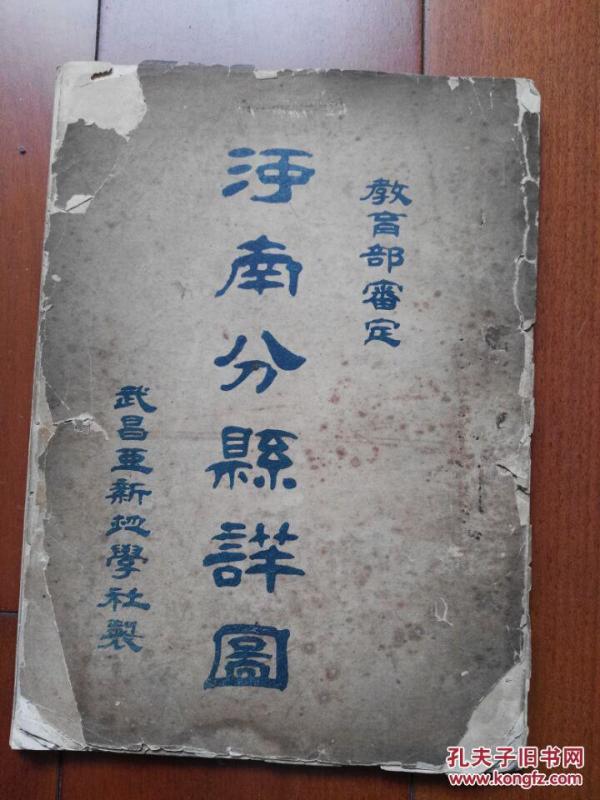 教育部審定
河南分縣詳圖
武昌亞新地學社製
孔夫子旧书网
www.kongfz.com